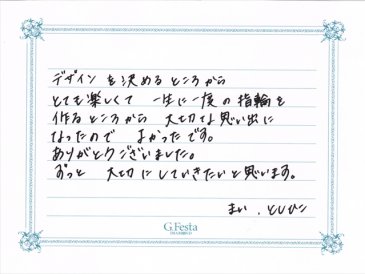 デザインを決めるところから
とても楽しくて 一生に一度の指輪を
作るところから 大切な思い出に
なったので よかったです。
ありがとうございました。
ずっと 大切にしていきたいと思います。
まい . としひこ
G.Festa